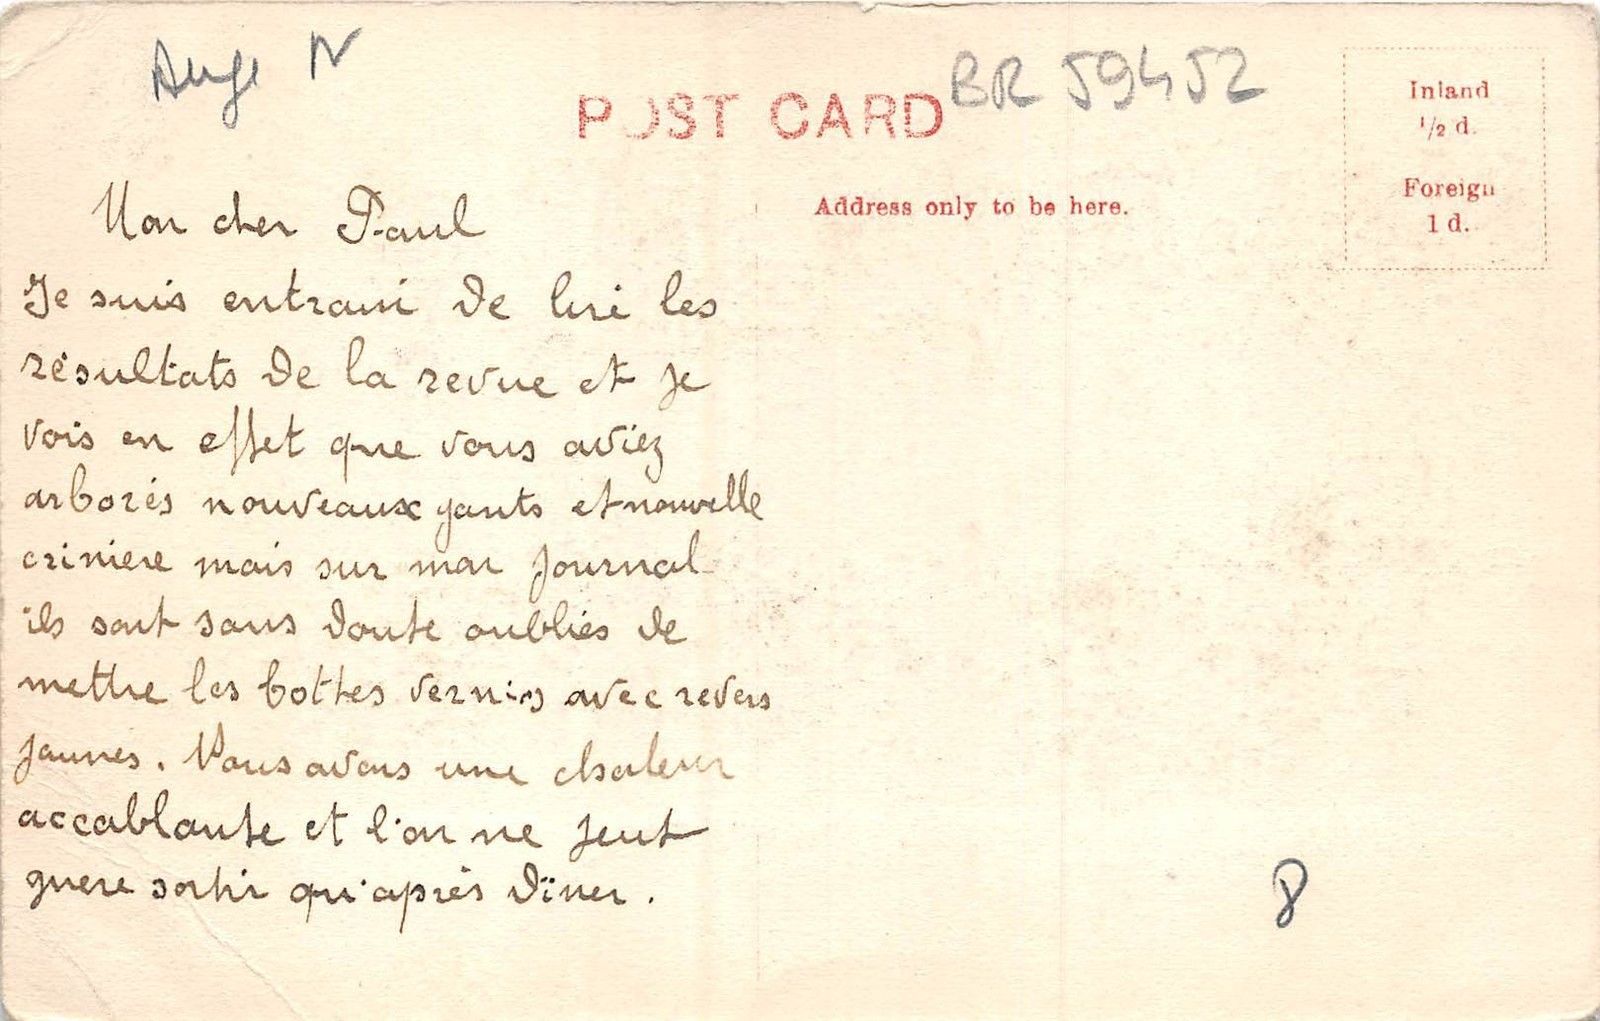 BR 59452
POST CARD
Inland
1/2 d.
Foreign
1 d.
Address only to be here.
Mon cher Paul
Je suis entrain de lire les
résultats de la revue et je
vois en effet que vous aviez
arborés nouveaux gants et nouvelle
criniere mais sur mon journal
ils sont sans doute oubliés de
mettre les bottes vernis avec revers
jaunes. Nous avons une chaleur
accablante et l'on ne peut
guere sortir qu'après dîner.
8